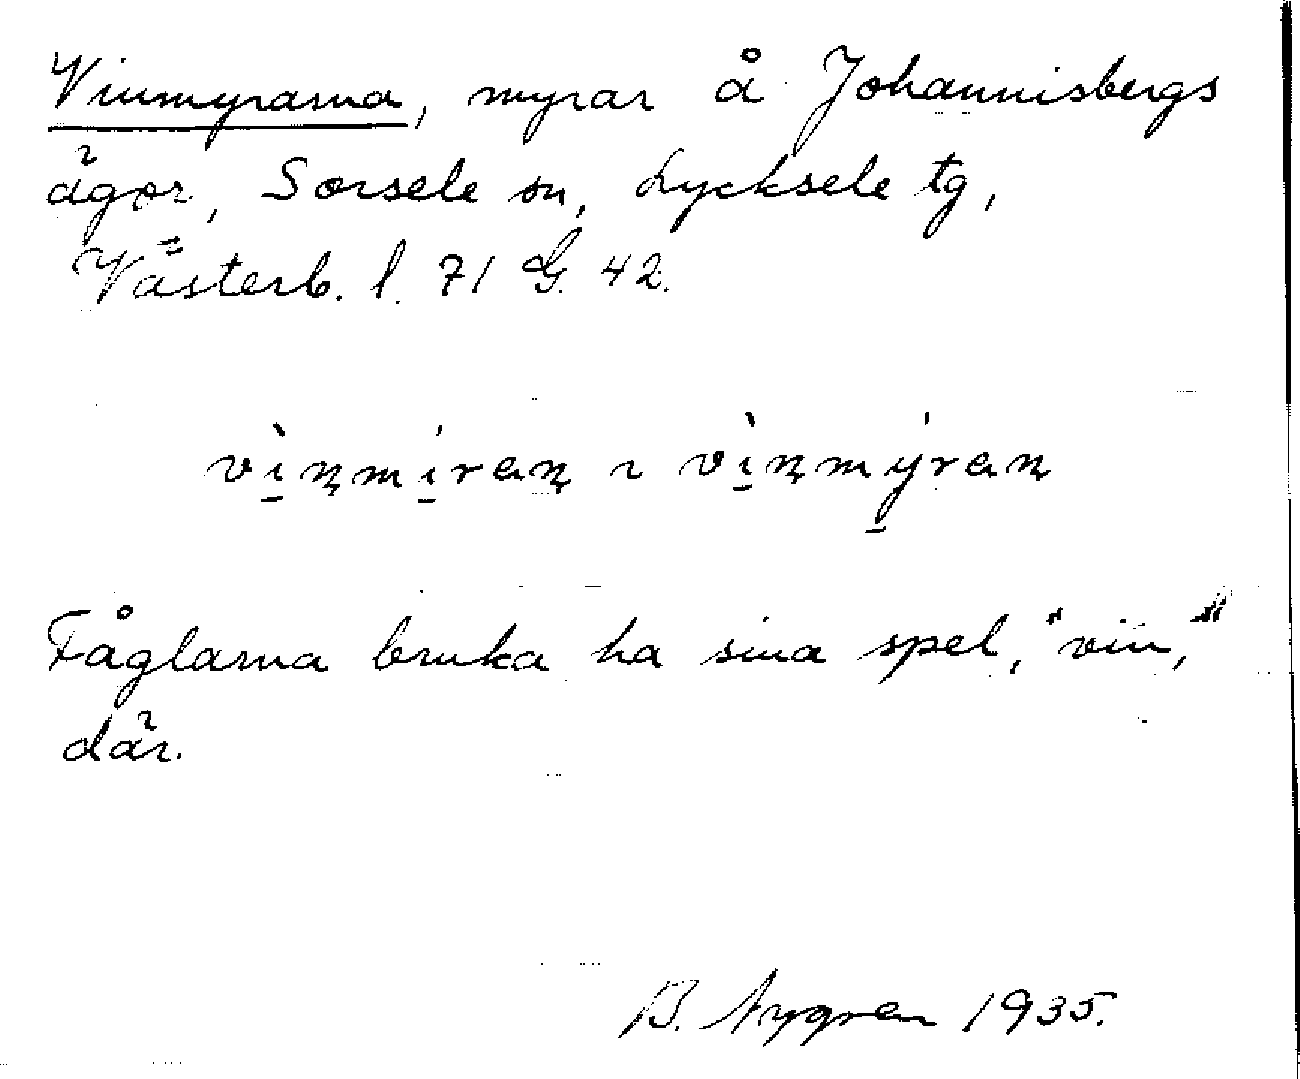 Vinmyrarna, myrar å Johannisbergs
ägor, Sorsele sn, Lycksele tg,
Västerb. l. 71 G. 42.
vìn̥míran̥ ~ vìn̥mýran̥
Fåglarna bruka ha sina spel, "vin,"
där.
B. Nygren 1935.